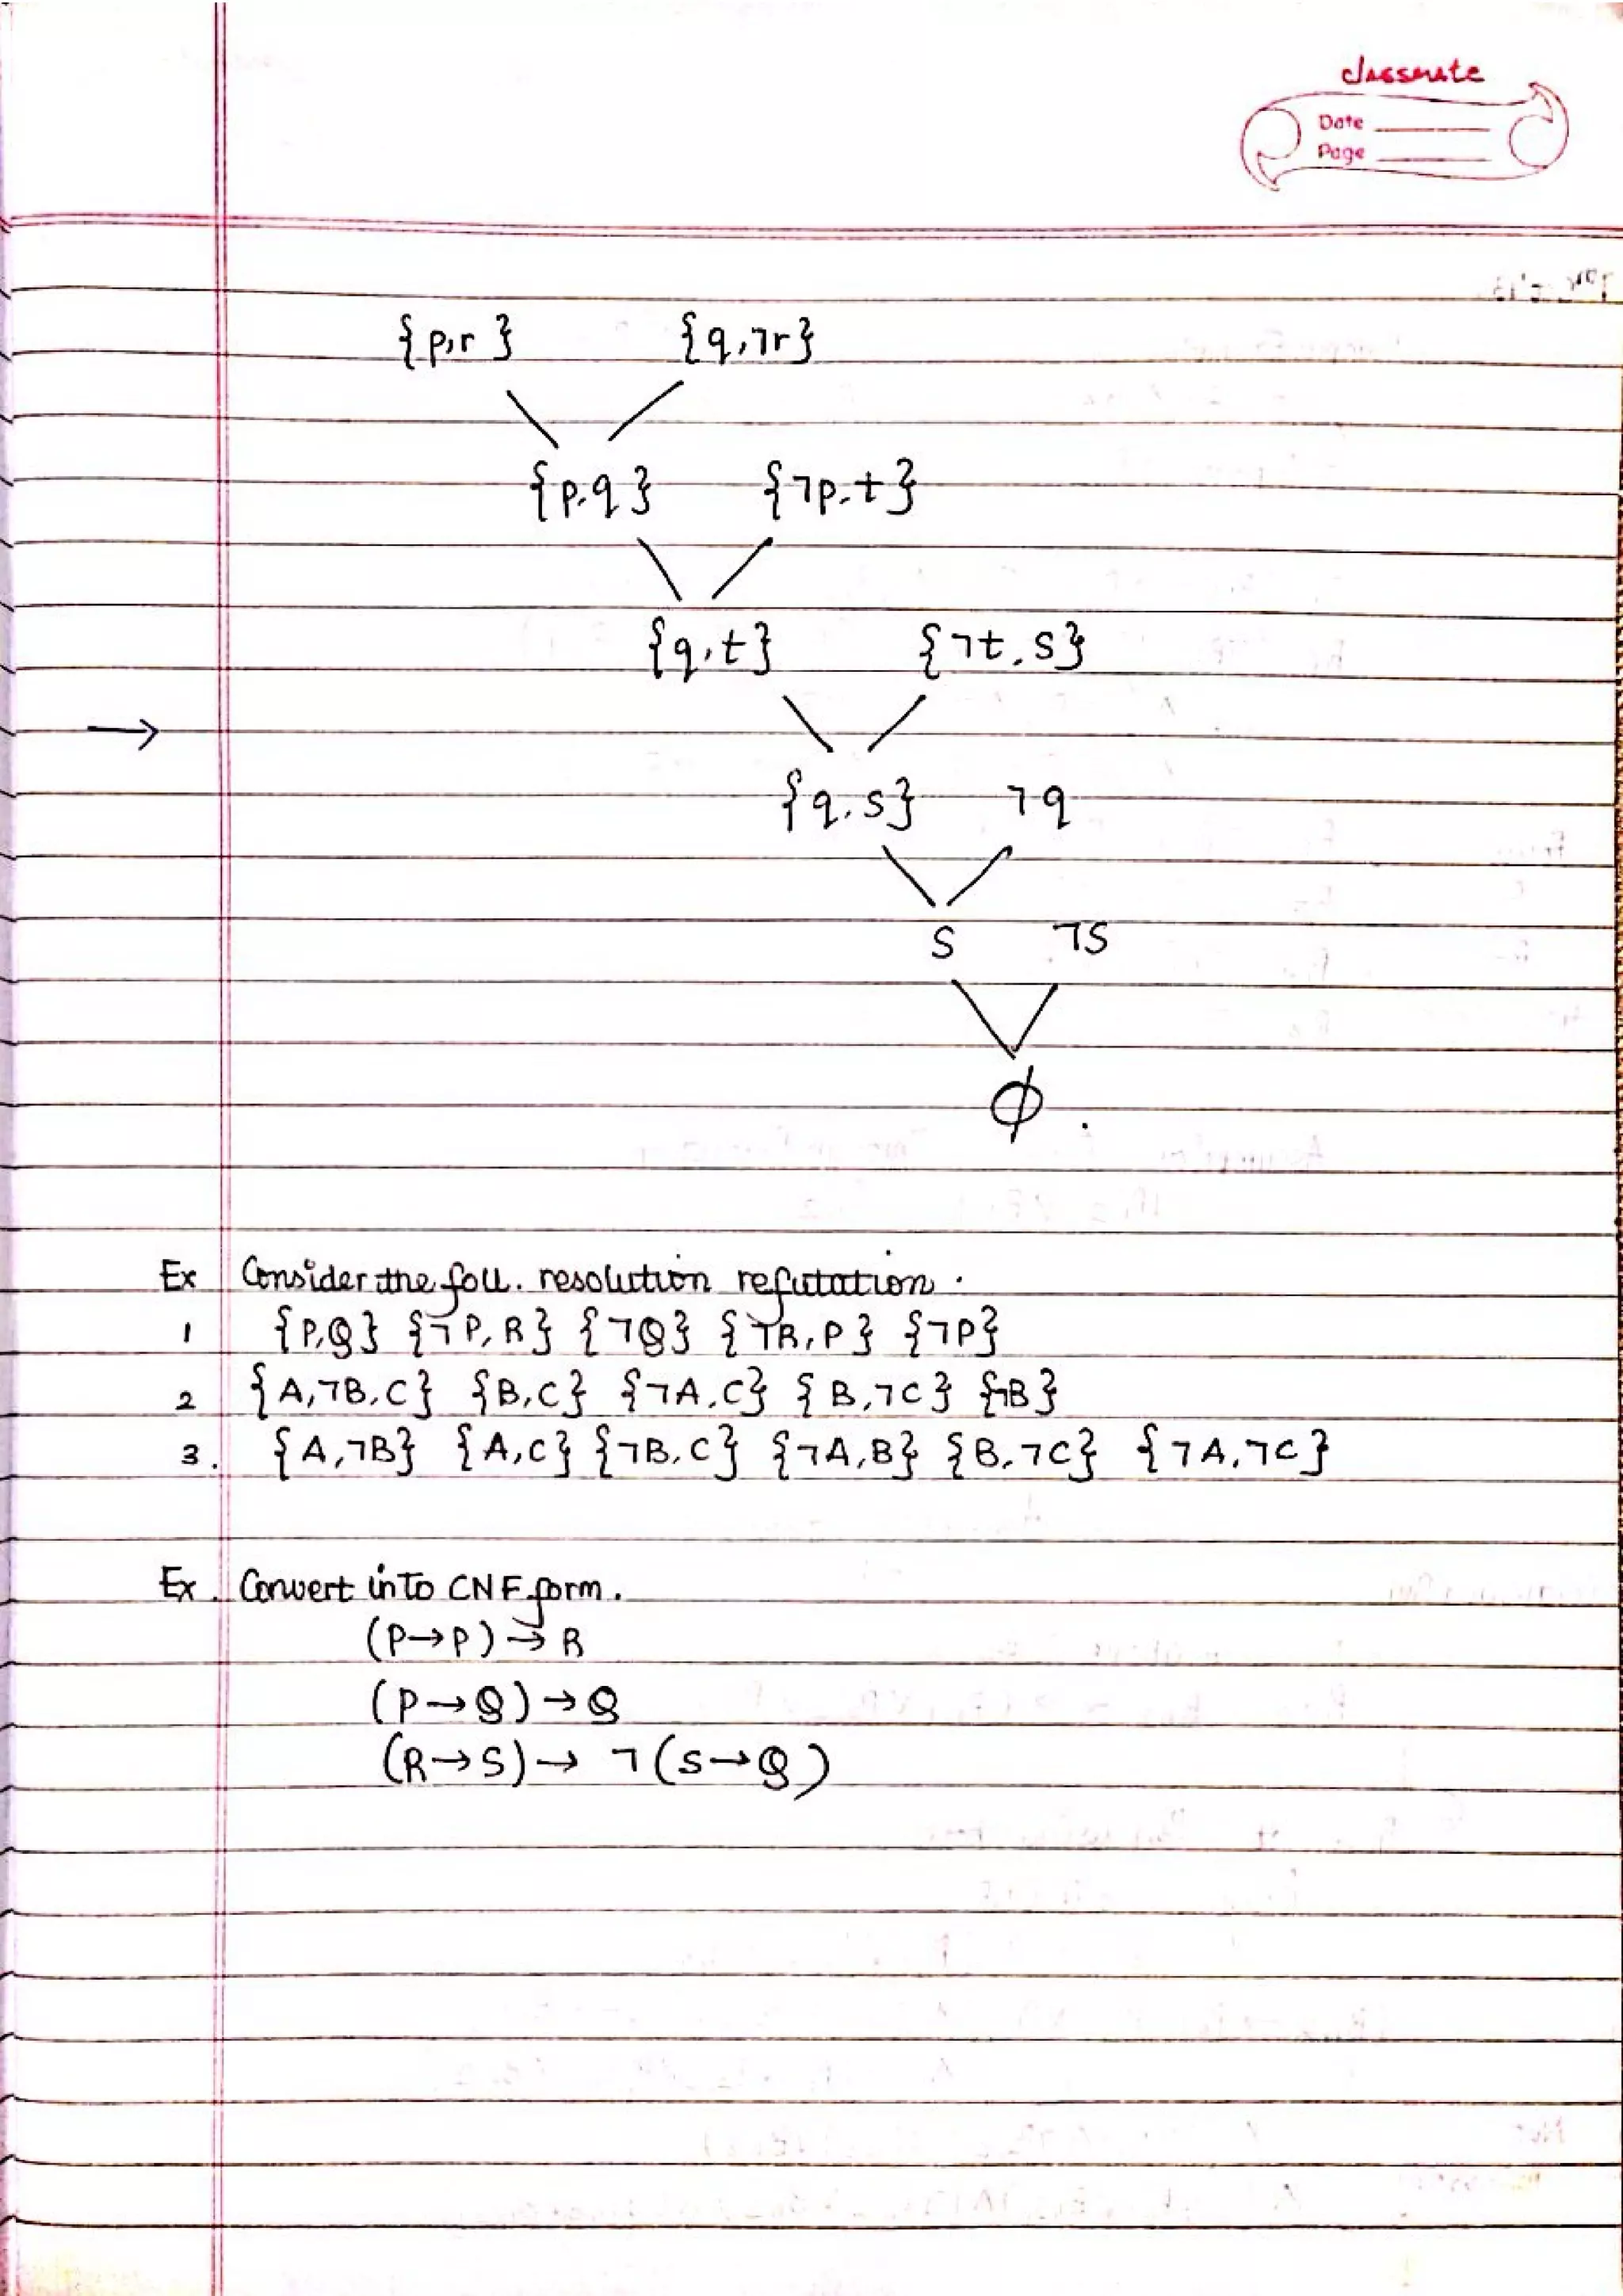 classmate
Date
Page
{p,r} {q,¬r}
{p,q} {¬p,t}
{q,t} {¬t,s}
→
{q,s} ¬q
s ¬s
ϕ .
Ex Consider the foll. resolution refutation.
1 {P,Q} {¬P,R} {¬Q} {¬R,P} {¬P}
2 {A,¬B,C} {B,C} {¬A,C} {B,¬C} {¬B}
3. {A,¬B} {A,C} {¬B,C} {¬A,B} {B,¬C} {¬A,¬C}
Ex. Convert into CNF form.
(P→P)→R
(P→Q)→Q
(R→S)→ ¬(S→Q)